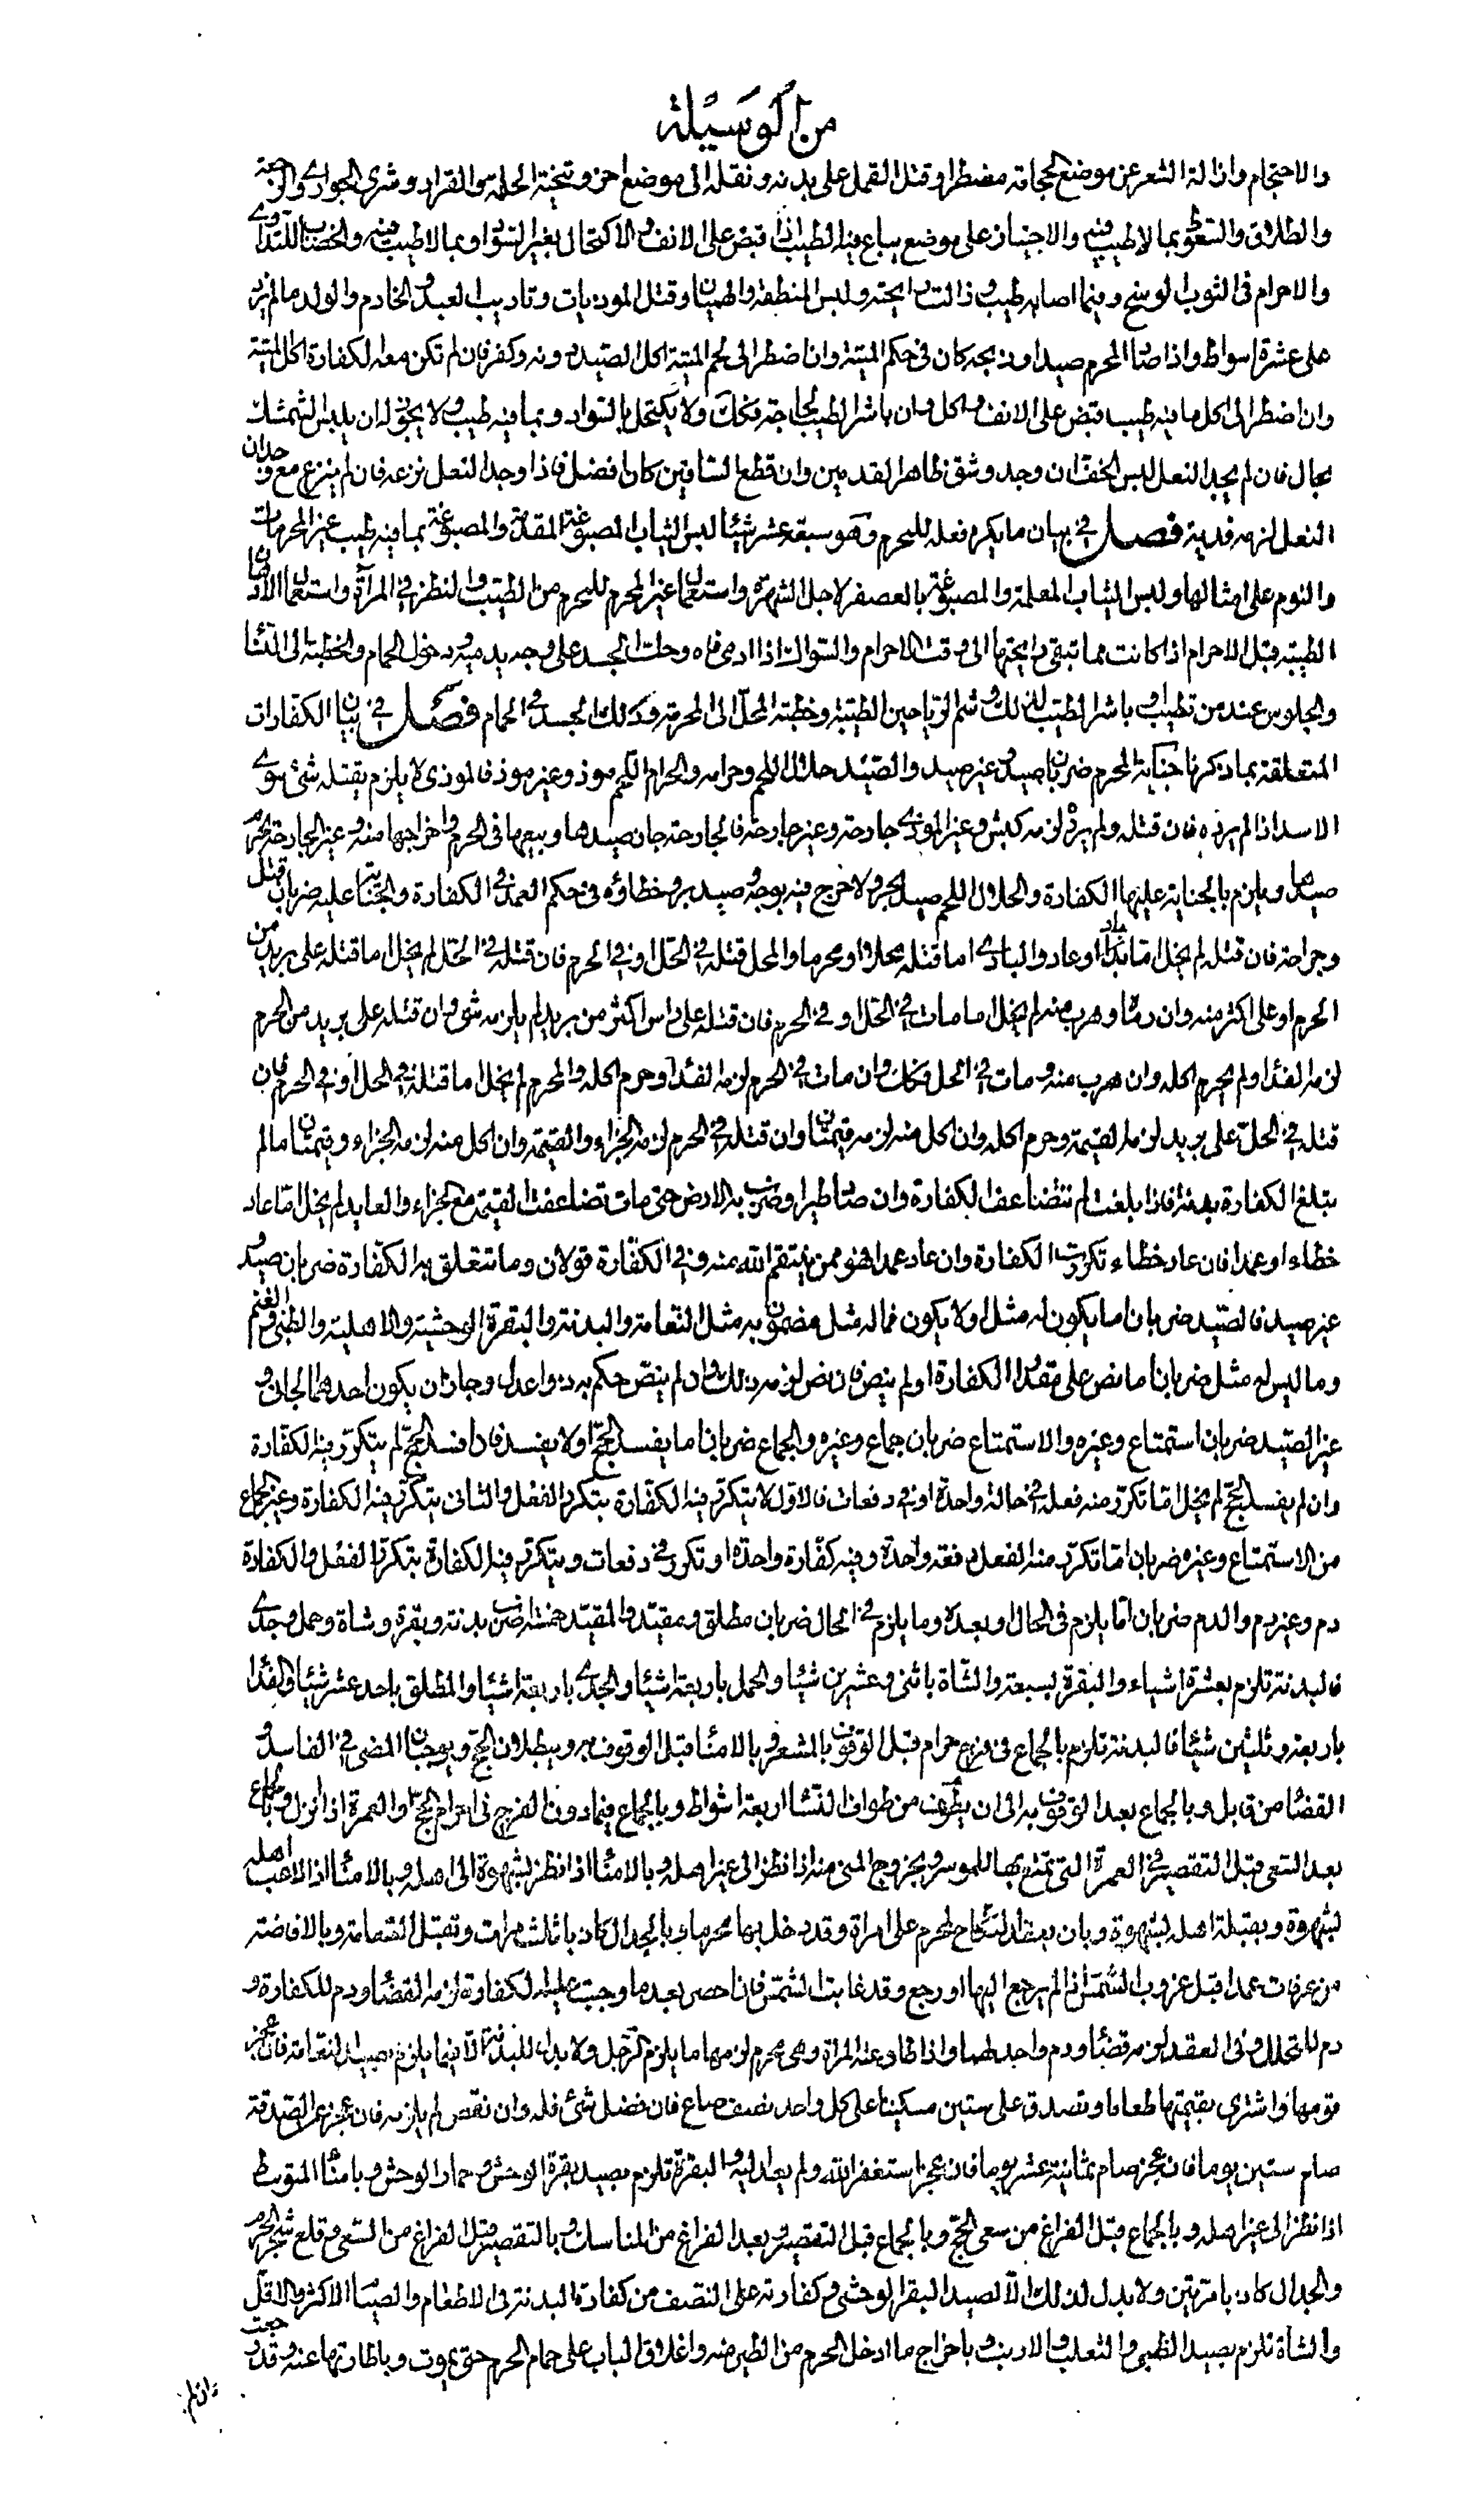 من الوسيلة
والاحتجام وازالة الشعر عن موضع الحجامة مضطرا وقتل القمل على بدنه ونقله الى موضع اخر وتنحية الحلمة والقراد وشرى الجوارى والرجعة
والطلاق والتسعط بما لا طيب فيه والاجتياز على موضع يباع فيه الطيب اذا قبض على الانف والاكتحال بغير السواد وبما لا طيب فيه والخضاب للتداوى
والاحرام فى الثوب الوسخ وفيما اصابه طيب وذالت رايحته ولبس المنطقة والهميان وقتل الموذيات وتاديب العبد والخادم والولد ما لم يزد
على عشرة اسواط واذا صاد المحرم صيدا وذبحه كان فى حكم الميتة وان اضطر الى لحم الميتة اكل الصيد دونه وكفر فان لم تكن معه الكفارة اكل الميتة
وان اضطر الى اكل ما فيه طيب قبض على الانف واكل وان باشر الطيب لحاجة فكذلك ولا يكتحل بالسواد وبما فيه طيب ولا يجوز له ان يلبس الشمشك
بحال فان لم يجد النعل لبس الخف ان وجد وشق ظاهر القدمين وان قطع الساقين كان افضل فاذا وجد النعل نزعه فان لم ينزع مع وجدان
النعل لزمه فدية فصل فى بيان ما يكره فعله للمحرم وهو سبعة عشر شيئا لبس الثياب المصبوغة المقدمة والمصبوغة بما فيه طيب غير المحرمات
والنوم على امثالها ولبس الثياب المعلمة والمصبوغة بالعصفر لاجل الشهرة واستعمال غير المحرم للمحرم من الطيب والنظر فى المرآة واستعمال الادهان
الطيبة قبل الاحرام اذا كانت مما تبقى رايحتها الى وقت الاحرام والسواك اذا ادمى فاه وحك الجسد على وجه يدميه ودخول الحمام والخطبة الى النساء
والجلوس عند من تطيب او باشر الطيب لذلك وشم الرياحين الطيبة وخطبة المحل الى المحرمة وذلك الجسد فى الحمام فصل فى بيان الكفارات
المتعلقة بما ذكرنا جناية المحرم ضربان صيد وغير صيد والصيد حلال اللحم وحرامه والحرام اللحم موذ وغير موذ فالموذى لا يلزم بقتله شئ سوى
الاسد اذا لم يرده فان قتله ولم يرده لزمه كبش وغير الموذى جارحة وغير جارحة فالجارحة جاز صيدها وبيعها فى الحرم واخراجها منه وغير الجارحة يحرم
صيدها ويلزم بالجناية عليها الكفارة والحلال اللحم صيد البحر ولا حرج فيه بوجه وصيد بر وخطاؤه فى حكم العمد فى الكفارة والجناية عليه ضربان قتل
وجراحة فان قتله لم يخل اما بدا او عاد والبادى اما قتله محلا او محرما والمحل قتله فى الحل او فى الحرم فان قتله فى الحل لم يخل اما قتله على بريد من
الحرم او على اكثر منه وان رماه وهرب منه لم يخل ما مات فى الحل او فى الحرم فان قتله على راس اكثر من بريد لم يلزمه شئ وان قتله على بريد من الحرم
لزمه الفداء ولم يحرم اكله وان هرب منه ومات فى الحل فكذلك وان مات فى الحرم لزمه الفداء وحرم اكله والمحرم لم يخل اما قتله فى الحل او فى الحرم فان
قتله فى الحل على بريد لزمه القيمة وحرم اكله وان اكل منه لزمه قيمتان وان قتله فى الحرم لزمه الجزاء والقيمة وان اكل منه لزمه الجزاء وقيمتان ما لم
يبلغ الكفارة بدنة فاذا بلغت لم تتضاعف الكفارة وان صاد طيرا وضرب به الارض حتى مات تضاعفت القيمة مع الجزاء والعايد لم يخل اما عاد
خطاء او عمدا فان عاد خطاء تكررت الكفارة وان عاد عمدا فهو ممن ينتقم الله منه وفى الكفارة قولان وما تتعلق به الكفارة ضربان صيد و
غير صيد فالصيد ضربان ما يكون له مثل او لا يكون فما له مثل مضمون به مثل النعامة والبدنة والبقرة الوحشية والاهلية والظبى والغنم
وما ليس له مثل ضربان ما نص على مقدار الكفارة او لم ينص فان نص لزمه ذلك وان لم ينص حكم به ذوا عدل وجاز ان يكون احدهما الجانى و
غير الصيد ضربان استمتاع وغيره والاستمتاع ضربان جماع وغيره والجماع ضربان ما يفسد الحج او لا يفسد فان افسد الحج لم يتكرر فيه الكفارة
وان لم يفسد الحج لم يخل اما تكرر منه فعله فى حالة واحدة او فى دفعات فالاول لا يتكرر فيه الكفارة بتكرر الفعل والثانى يتكرر فيه الكفارة وغير الجماع
من الاستمتاع وغيره ضربان اما تكرر منه الفعل دفعة واحدة وفيه كفارة واحدة او تكرر فى دفعات ويتكرر فيه الكفارة بتكرر الفعل والكفارة
دم وغير دم والدم ضربان اما يلزم فى الحال او بعده وما يلزم فى الحال ضربان مطلق ومقيد والمقيد خمسة اضرب بدنة وبقرة وشاة وحمل وجدى
فالبدنة تلزم بعشرة اشياء والبقرة بسبعة والشاة باثنى وعشرين شيئا والحمل باربعة اشياء والجدى باربعة اشياء والمطلق باحد عشر شيئا والفداء
باربعة وثلثين شيئا فالبدنة تلزم بالجماع فى فرج حرام قبل الوقوف بالمشعر وبالامناء قبل الوقوف به ويبطلان الحج ويوجبان المضى فى الفاسد و
القضاء من قابل وبالجماع بعد الوقوف به الى ان يطوف من طواف النساء اربعة اشواط وبالجماع فيما دون الفرج فى احرام الحج والعمرة اذا انزل وبالجماع
بعد السعى قبل التقصير فى العمرة التى تمتع بها للموسر وبخروج المنى منه اذا نظر الى غير اهله وبالامناء اذا نظر بشهوة الى اهله وبالامناء اذا لاعب اهله
بشهوة وبقبلة اهله بشهوة وبان يعقد النكاح لمحرم على امراة وقد دخل بها محرما وبالجدال كاذبا ثلث مرات وتقبل القمامة وبالافاضة
من عرفات عمدا قبل غروب الشمس اذا لم يرجع اليها او رجع وقد غابت الشمس فان احصر بعد ما وجبت عليه الكفارة لزمه القضاء ودم للكفارة و
دم للتحلل وفى العقد لزمه قضاء ودم واحد لهما واذا طاوعته المراة وهى محرم لزمها ما يلزم الرجل ولا بدل للبدنة الا فيما يلزم بصيد النعامة فان عجز
قومها واشترى بقيمتها طعاما وتصدق على ستين مسكينا على كل واحد نصف صاع فان فضل شئ فله وان نقص لم يلزمه فان عجز عن الصدقة
صام ستين يوما فان عجز صام ثمانية عشر يوما فان عجز استغفر الله ولم يعد اليه والبقرة تلزم بصيد بقرة الوحش وحمار الوحش وبامناء المتوسط
اذا نظر الى غير اهله وبالجماع قبل الفراغ من سعى الحج وبالجماع قبل التقصير وبعد الفراغ من المناسك وبالتقصير قبل الفراغ من السعى وقلع شجر الحرم
والجدال كاذبا مرتين ولا بدل لذلك الا لصيد البقر الوحشى وكفارته على النصف من كفارة البدنة فى الاطعام والصيام الاكثر والاقل
والشاة تلزم بصيد الظبى والثعلب والارنب وباخراج ما ادخل الحرم من الطير منه واغلاق الباب على حمام الحرم حتى يموت وباطارتها عنه وقد رجعت